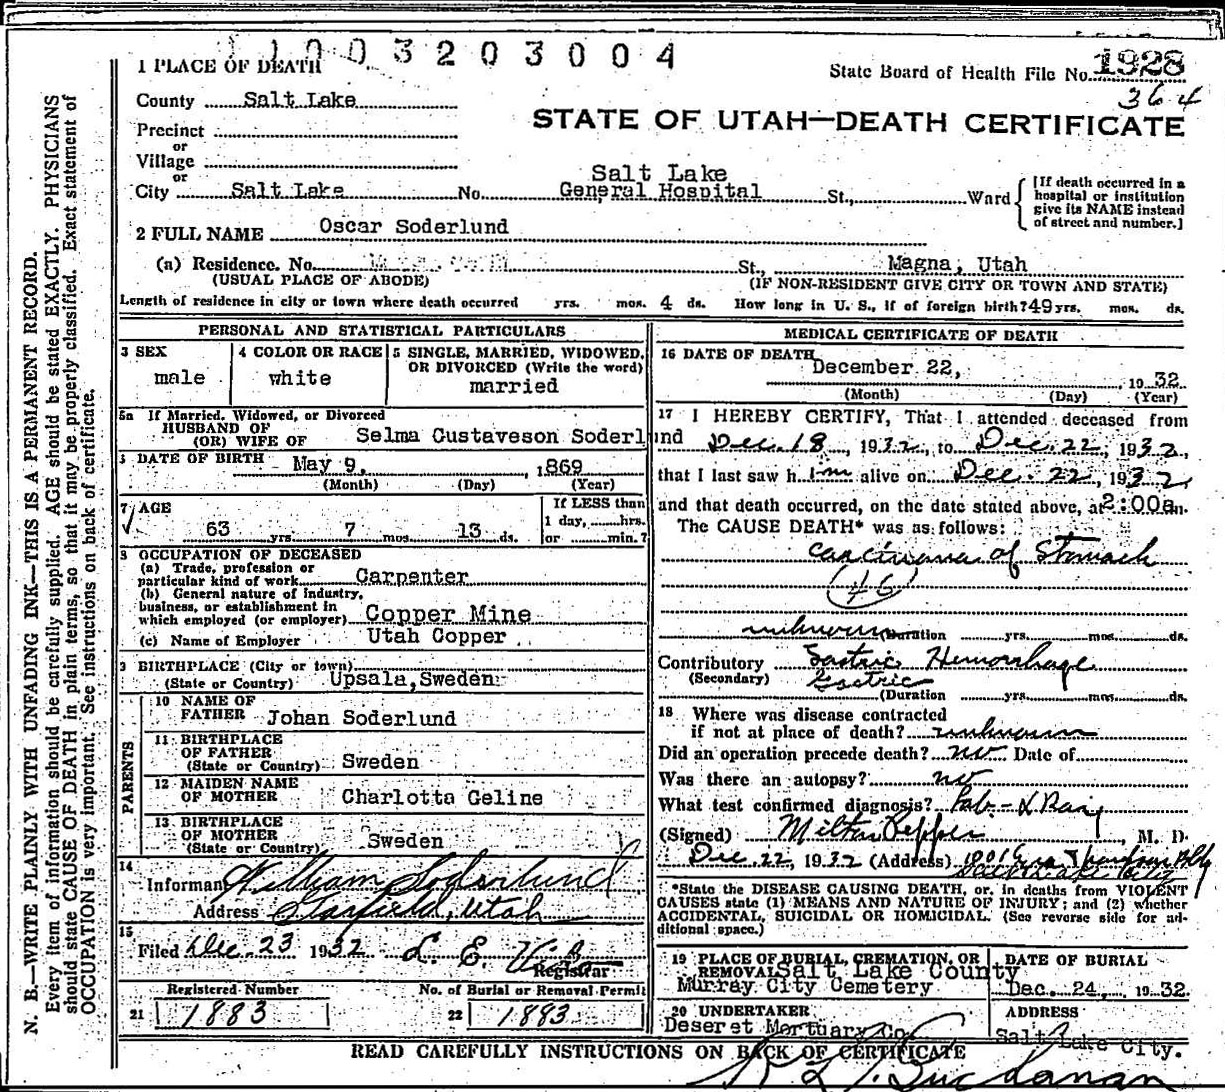 1003203004
1 PLACE OF DEATH
State Board of Health File No. 1928
364
County Salt Lake
STATE OF UTAH—DEATH CERTIFICATE
Precinct
or
Village
or
Salt Lake
City Salt Lake No. General Hospital St., Ward { [If death occurred in a hospital or institution give its NAME instead of street and number.]
2 FULL NAME Oscar Soderlund
(a) Residence. No. St., Magna, Utah
(USUAL PLACE OF ABODE) (IF NON-RESIDENT GIVE CITY OR TOWN AND STATE)
Length of residence in city or town where death occurred yrs. mos. 4 ds. How long in U. S., if of foreign birth? 49 yrs. mos. ds.
PERSONAL AND STATISTICAL PARTICULARS
3 SEX
male
4 COLOR OR RACE
white
5 SINGLE, MARRIED, WIDOWED,
OR DIVORCED (Write the word)
married
5a If Married, Widowed, or Divorced
HUSBAND OF
(OR) WIFE OF Selma Gustaveson Soderlund
DATE OF BIRTH May 9, 1869
(Month) (Day) (Year)
7 AGE
63 yrs. 7 mos. 13 ds.
If LESS than
1 day, hrs.
or min.?
OCCUPATION OF DECEASED
(a) Trade, profession or
particular kind of work Carpenter
(b) General nature of industry,
business, or establishment in
which employed (or employer) Copper Mine
(c) Name of Employer Utah Copper
BIRTHPLACE (City or town)
(State or Country) Upsala, Sweden
PARENTS
10 NAME OF
FATHER Johan Soderlund
11 BIRTHPLACE
OF FATHER
(State or Country) Sweden
12 MAIDEN NAME
OF MOTHER Charlotta Geline
13 BIRTHPLACE
OF MOTHER
(State or Country) Sweden
14
Informant William Soderlund
Address Utah
15
Filed Dec. 23 1932 L. E.
Registrar
Registered Number
21 1883
No. of Burial or Removal Permit
22 1883
MEDICAL CERTIFICATE OF DEATH
16 DATE OF DEATH
December 22, 1932
(Month) (Day) (Year)
17 I HEREBY CERTIFY, That I attended deceased from
Dec. 18, 1932, to Dec. 22, 1932,
that I last saw him alive on Dec. 22, 1932,
and that death occurred, on the date stated above, at 2:00a m.
The CAUSE DEATH* was as follows:
carcinoma of Stomach
(46)
unknown (Duration yrs. mos. ds.
Contributory Gastric Hemorrhage
(Secondary) Gastric
(Duration yrs. mos. ds.
18 Where was disease contracted
if not at place of death? unknown
Did an operation precede death? no Date of
Was there an autopsy? no
What test confirmed diagnosis? Lab - X Ray
(Signed) Milton Pepper, M. D.
Dec. 22, 1932 (Address) 1001 Bldg
Salt Lake City
*State the DISEASE CAUSING DEATH, or, in deaths from VIOLENT
CAUSES state (1) MEANS AND NATURE OF INJURY; and (2) whether
ACCIDENTAL, SUICIDAL OR HOMICIDAL. (See reverse side for ad-
ditional space.)
19 PLACE OF BURIAL, CREMATION, OR
REMOVAL Salt Lake County
Murray City Cemetery
DATE OF BURIAL
Dec. 24, 1932.
20 UNDERTAKER
Deseret Mortuary Co.
ADDRESS
Salt Lake City.
READ CAREFULLY INSTRUCTIONS ON BACK OF CERTIFICATE
Buchanan
N. B.—WRITE PLAINLY WITH UNFADING INK—THIS IS A PERMANENT RECORD.
Every item of information should be carefully supplied. AGE should be stated EXACTLY. PHYSICIANS
should state CAUSE OF DEATH in plain terms, so that it may be properly classified. Exact statement of
OCCUPATION is very important. See instructions on back of certificate.